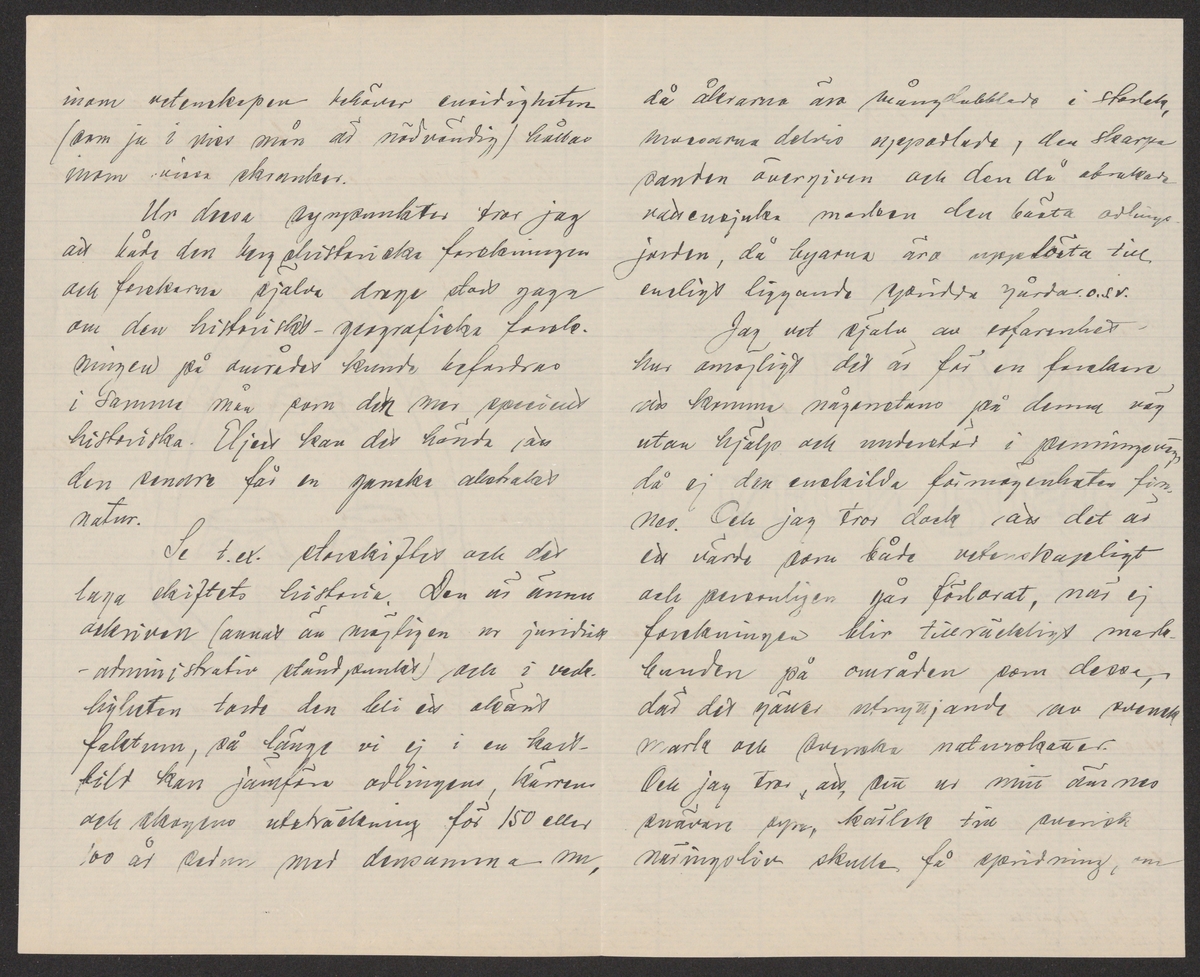 inom vetenskapen behöver ensidigheten
(som ju i viss mån är nödvändig) hållas
inom vissa skrankor.
Ur dessa synpunkter tror jag
att både den berghistoriska forskningen
och forskarna själva draga stort gagn
om den historiskt-geografiska forsk-
ningen på området kunde befordras
i samma mån som den mer speciellt
historiska. Eljest kan det hända att
den senare får en ganska abstrakt
natur.
Se t.ex. storskiftes och det
laga skiftets historia. Den är ännu
oskriven (annat än möjligen ur juridisk
-administrativ ståndpunkt) och i verk-
ligheten torde den bli ett okänt
faktum, så länge vi ej i en kart-
bild kan jämföra odlingens, kärrens
och skogens utsträckning för 150 eller
100 år sedan med densamma nu,
då åkrarna äro mångdubblade i storlek,
mossarna delvis uppodlade, den skarpa
sanden övergiven och den då obrukade
vattensjuka marken den bästa odlings-
jorden, då byarna äro upplösta till
ensligt liggande spridda gårdar o.s.v.
Jag vet själv av erfarenhet
hur omöjligt det är för en forskare
att komma någonstans på denna väg
utan hjälp och understöd i penningeväg,
då ej den enskilda förmögenheten fin-
nes. Och jag tror dock att det är
ett värde som både vetenskapligt
och personligen går förlorat, när ej
forskningen blir tillräckligt mark-
bunden på områden som dessa,
där det gäller utnyttjande av svensk
mark och svenska naturskatter.
Och jag tror, att, sett ur mitt ämnes
snävare syn, kärlek till svensk
näringsliv skulle få spridning, om